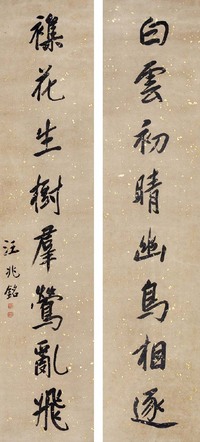 白雲初晴幽鳥相逐
襍花生樹羣鶯亂飛
汪兆銘